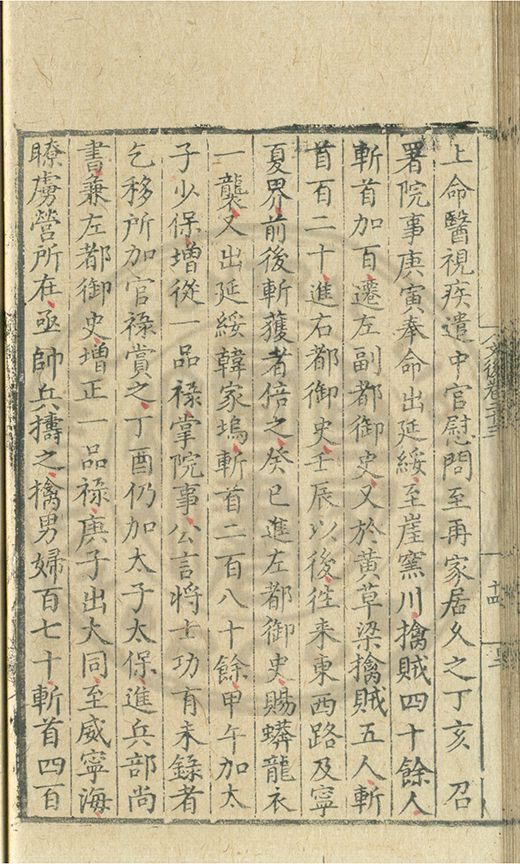 上命醫視疾遣中官慰問至再家居久之丁亥 召
署院事庚寅奉命出延綏至崖窰川擒賊四十餘人
斬首加百遷左副都御史又於黄草梁擒賊五人斬
首百二十進右都御史壬辰以後徃来東西路及寧
夏界前後斬獲者倍之癸巳進左都御史賜蟒龍衣
一襲又出延綏韓家塢斬首二百八十餘甲午加太
子少保增從一品禄掌院事公言将士功有未錄者
乞移所加官禄賞之丁酉仍加太子太保進兵部尚
書兼左都御史增正一品禄庚子出大同至威寧海
瞭虜營所在亟帥兵擣之擒男婦百七十斬首四百
文後卷二十三
十四